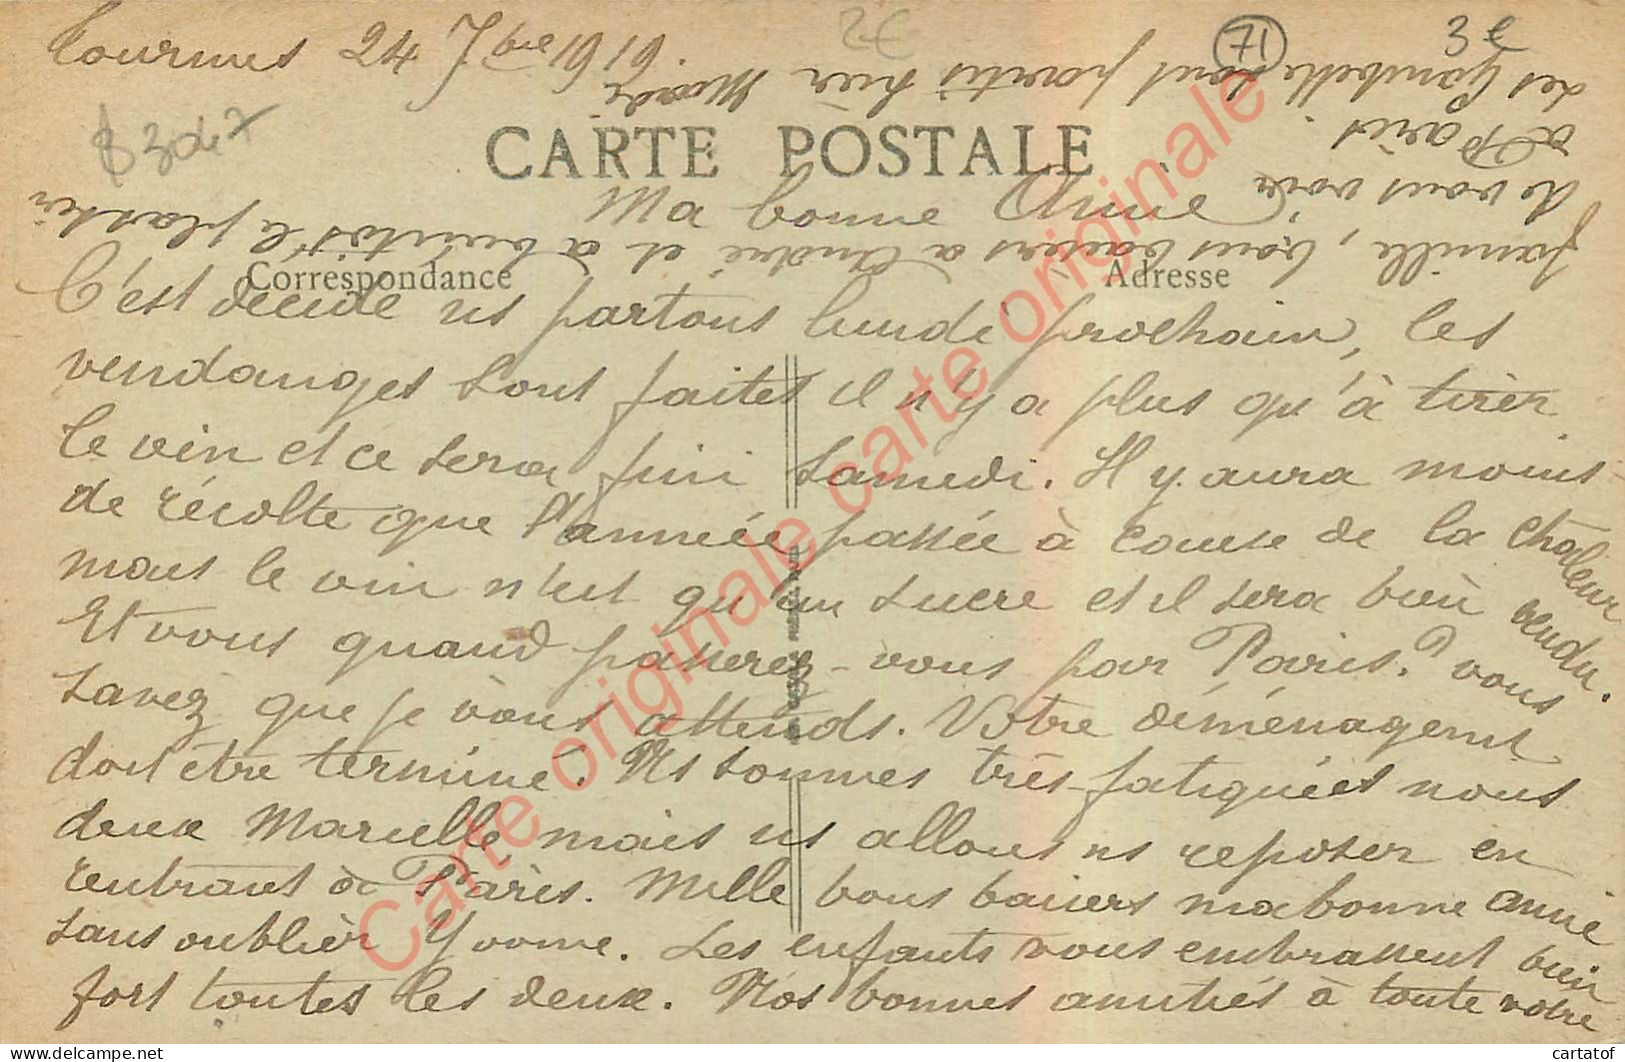 Tournus 24 7bre 1919.
2€
71
3€
83047
CARTE POSTALE
Ma bonne Annie
Correspondance
Adresse
C'est décidé ns partons lundi prochain, les
vendanges sont faites il n'y a plus qu'à tirer
le vin et ce sera fini samedi. Il y aura moins
de récolte que l'année passée à cause de la chaleur
mais le vin n'est qu'un sucre et il sera bien vendu.
Et vous quand passerez-vous par Paris? vous
savez que je vous attends. Votre déménagemt
doit être terminé. Ns sommes très fatiguées nous
deux Marcelle mais ns allons ns reposer en
rentrant à Paris. Mille bons baisers ma bonne Annie
sans oublier Yvonne. Les enfants vous embrassent bien
fort toutes les deux. Nos bonnes amitiés à toute votre
famille, bons baisers à André et à bientôt le plaisir
de vous voir
Les Gambette sont partis hier Mardi
à Paris.
Carte originale carte originale carte originale
delcampe.net
cartatof